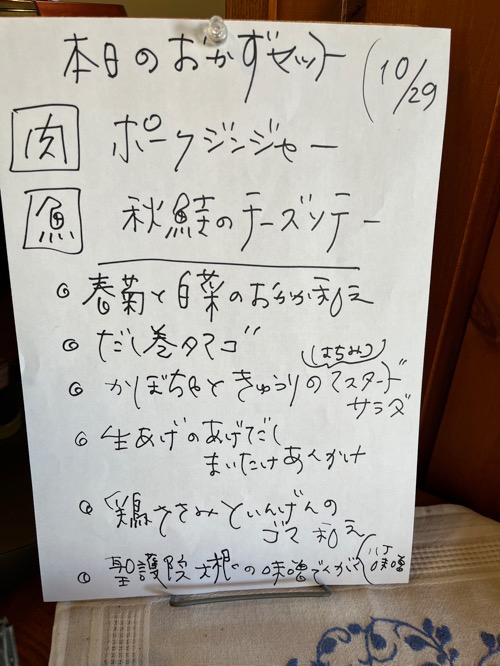 本日のおかずセット (10/29
肉 ポークジンジャー
魚 秋鮭のチーズソテー
春菊と白菜のおかか和え
だし巻タマゴ
(はちみつ)
かぼちゃときゅうりのマスタード
サラダ
生あげのあげだし
まいたけあんかけ
鶏ささみといんげんの
ゴマ和え
聖護院大根の味噌でんがく(八丁味噌